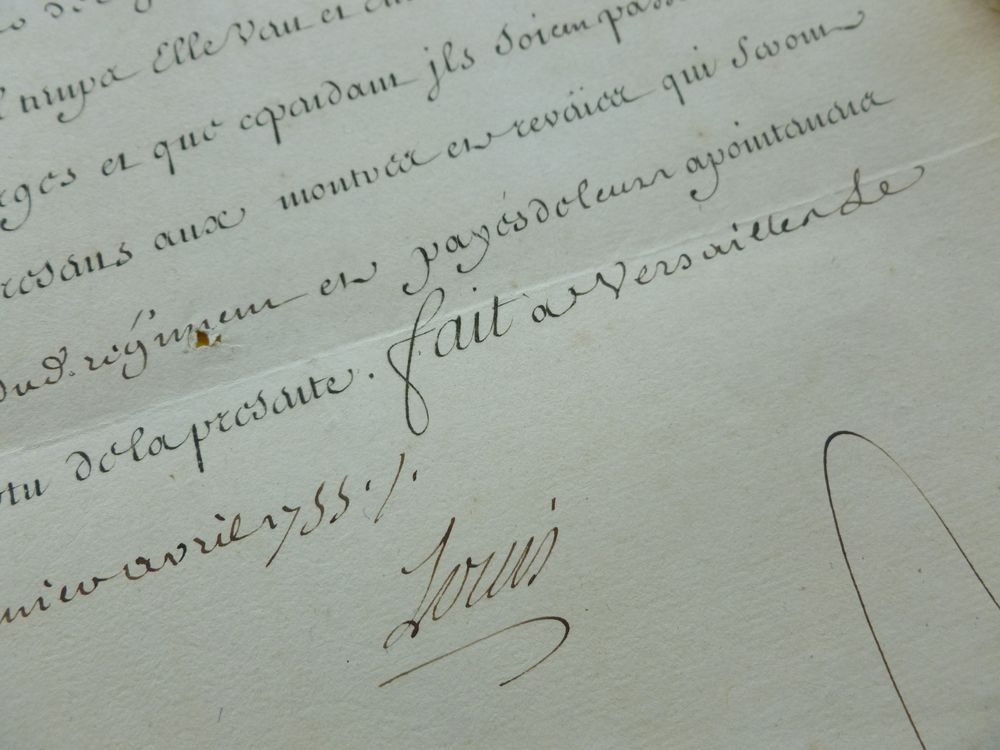 Elle Veut et
rges et que cependant jls Soient
resens aux montres et revües qui Seront
dud. régiment et payés de leurs apointemens
rtu de la presente. fait a Versailles Le
mier avril 1755 ./.
Louis